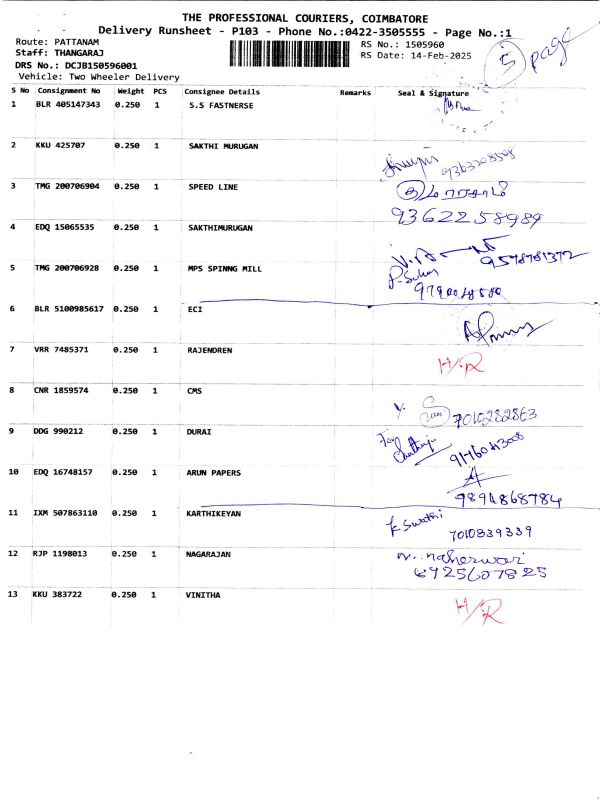 THE PROFESSIONAL COURIERS, COIMBATORE
Delivery Runsheet - P103 - Phone No.:0422-3505555 - Page No.:1
Route: PATTANAM
RS No.: 1505960
Staff: THANGARAJ
RS Date: 14-Feb-2025
DRS No.: DCJB150596001
5 page
Vehicle: Two Wheeler Delivery
S No Consignment No Weight PCS Consignee Details Remarks Seal & Signature
1 BLR 405147343 0.250 1 S.S FASTNERSE
2 KKU 425707 0.250 1 SAKTHI MURUGAN
9363208508
3 TMG 200706904 0.250 1 SPEED LINE
9362258989
4 EDQ 15065535 0.250 1 SAKTHIMURUGAN
9578781372
5 TMG 200706928 0.250 1 MPS SPINNG MILL
6 BLR 5100985617 0.250 1 ECI
7 VRR 7485371 0.250 1 RAJENDREN
H/R
8 CNR 1859574 0.250 1 CMS
7010282863
9 DDG 990212 0.250 1 DURAI
10 EDQ 16748157 0.250 1 ARUN PAPERS
9894868784
11 IXM 507863110 0.250 1 KARTHIKEYAN
K Swathi
7010839339
12 RJP 1198013 0.250 1 NAGARAJAN
6925607825
13 KKU 383722 0.250 1 VINITHA
H/R